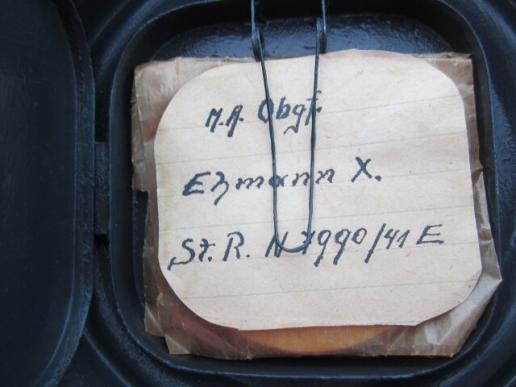 M.A. Obgf.
Ezmann X.
St. R. N 7990/41 E